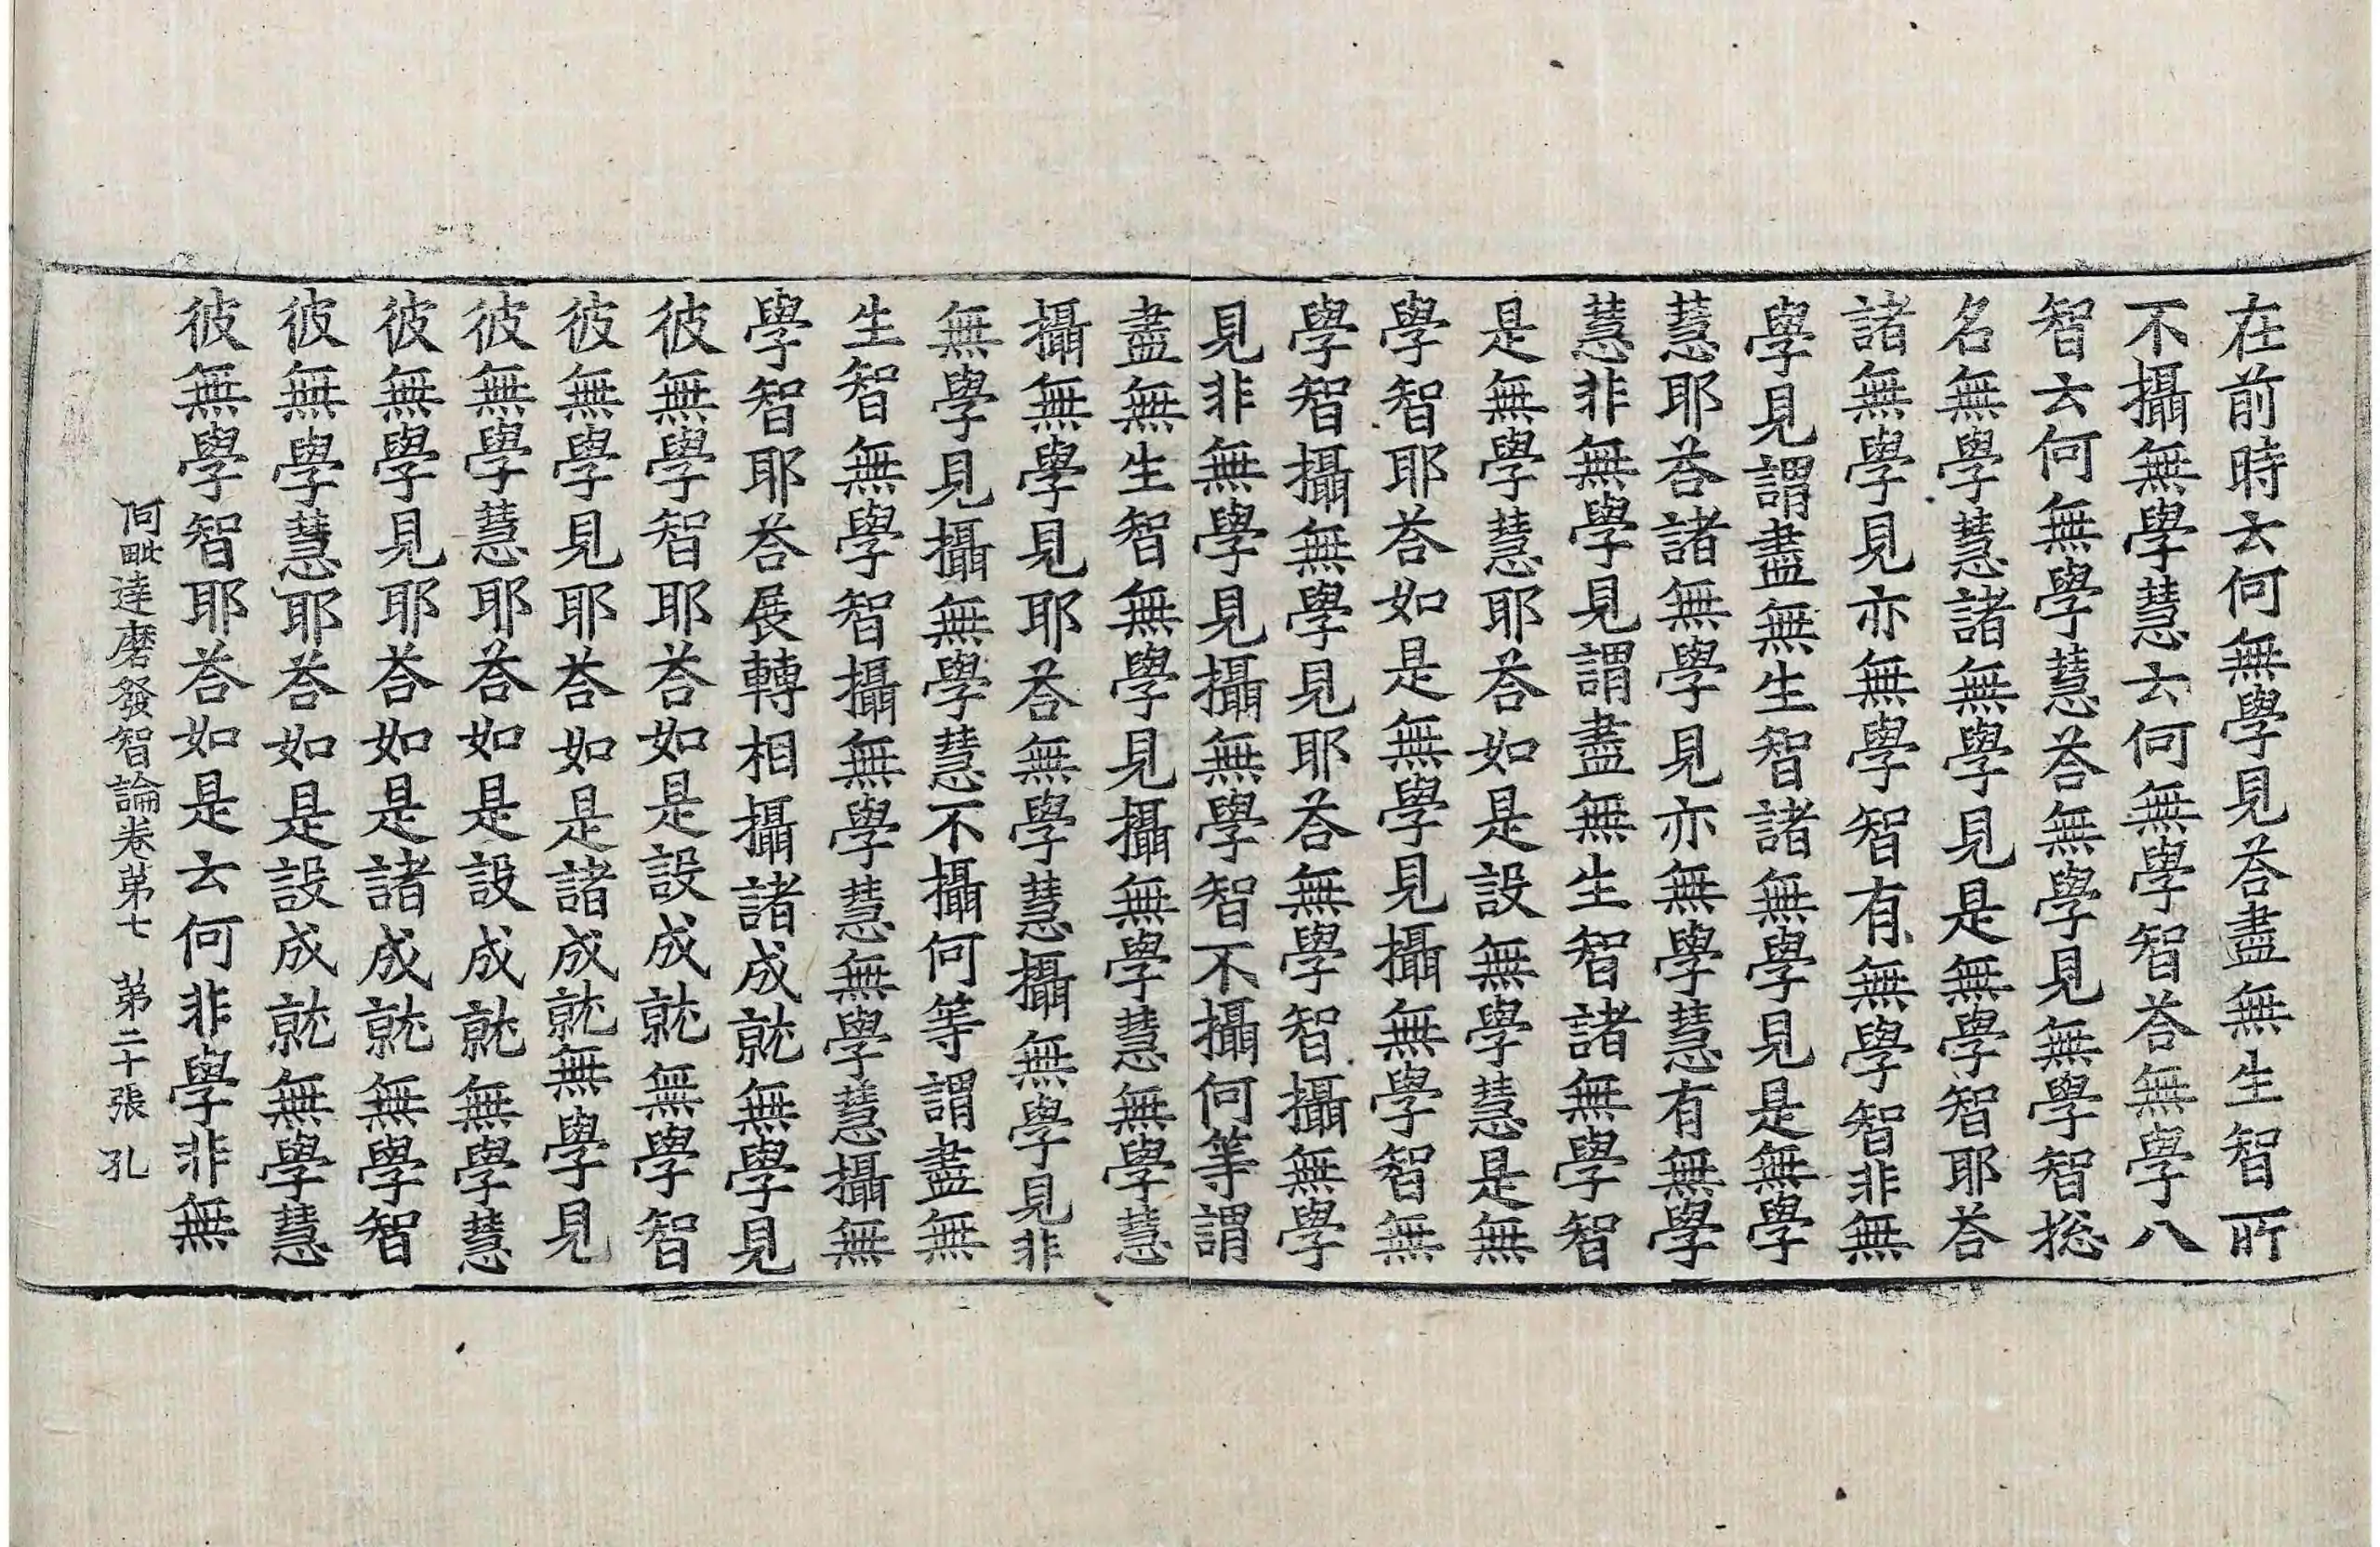 在前時云何無學見荅盡無生智所
不攝無學慧云何無學智荅無學八
智云何無學慧荅無學見無學智捴
名無學慧諸無學見是無學智耶荅
諸無學見亦無學智有無學智非無
學見謂盡無生智諸無學見是無學
慧耶荅諸無學見亦無學慧有無學
慧非無學見謂盡無生智諸無學智
是無學慧耶荅如是設無學慧是無
學智耶荅如是無學見攝無學智無
學智攝無學見耶荅無學智攝無學
見非無學見攝無學智不攝何等謂
盡無生智無學見攝無學慧無學慧
攝無學見耶荅無學慧攝無學見非
無學見攝無學慧不攝何等謂盡無
生智無學智攝無學慧無學慧攝無
學智耶荅展轉相攝諸成就無學見
彼無學智耶荅如是設成就無學智
彼無學見耶荅如是諸成就無學見
彼無學慧耶荅如是設成就無學慧
彼無學見耶荅如是諸成就無學智
彼無學慧耶荅如是設成就無學慧
彼無學智耶荅如是云何非學非無
阿毗達磨發智論卷第七 第二十張 孔